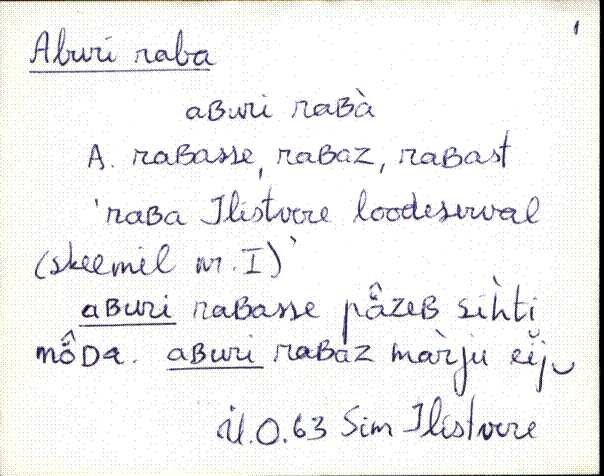 1
Aburi raba
aʙuri raʙà
A. raʙasse, raʙaz, raʙast
'raba Ilistvere loodeserval
(skeemil nr. I)'
aʙuri raʙasse pâzeʙ sihti
mȭᴅa. aʙuri raʙaz màrju eij
Ü.O.63 Sim Ilistvere